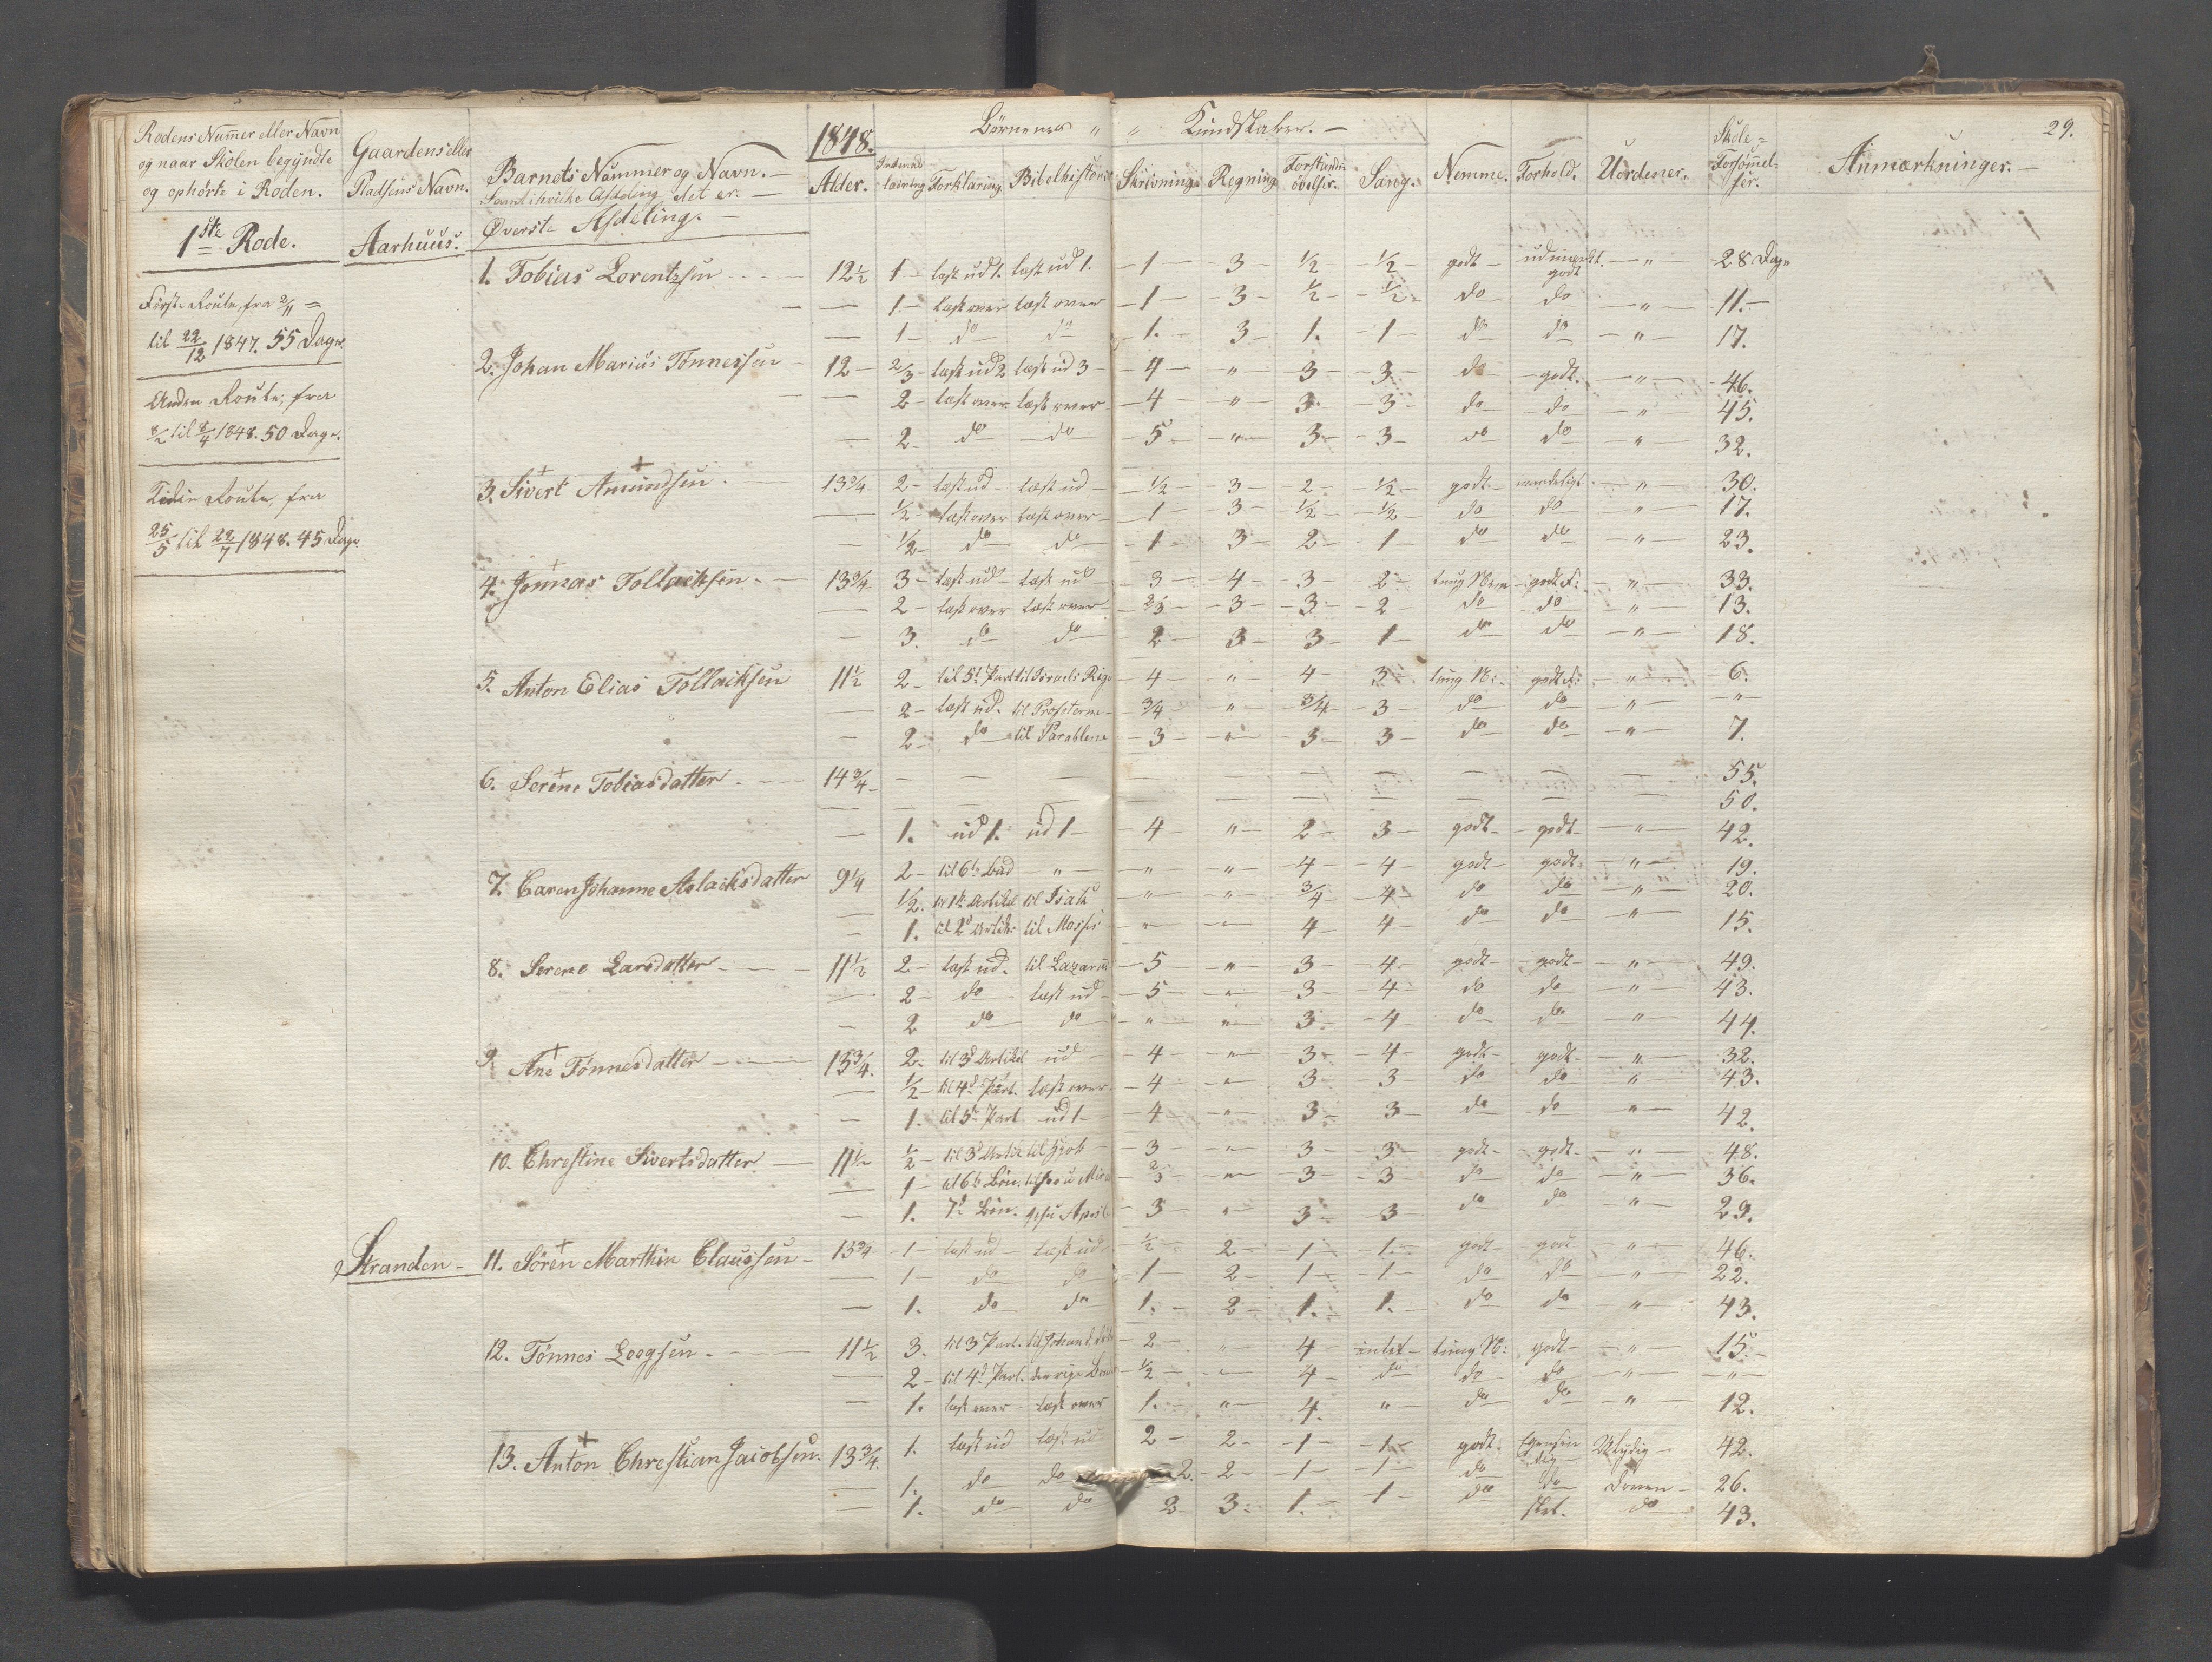 29.
Rodens Nummer eller Navn
og naar Skolen begyndte
og ophörte i Roden.
Gaardens eller
Pladsens Navn.
Barnets Nummer og Navn. -
Samt i hvilke Afdeling det er. -
1848.
Alder.
Börnenes " " Kundskaber. -
Indenadslæsning Forklaring. Bibelhistorie Skrivning. Regning Forstandsövelser. Sang. Nemme. Forhold. Uordener. Skole-Forsömmelser. Anmærkninger. -
1ste Rode. Aarhuus. Överste Afdeling. -
Förste Route, fra 2/11
til 22/12 1847. 55 Dage.
Anden Route, fra
8/2 til 8/4 1848. 50 Dage.
Tredie Route, fra
25/5 til 22/7 1848. 45 Dage.
1. Tobias Lorentzsen - 12 1/2 1 - læst ud 1. læst ud 1. - 1 - 3 - 1/2 - 1/2 - godt - udmærkt godt - " - 28 Dage
- 1 - læst over læst over - 1 - 3 - 1/2 - 1/2 - do do - " - 11. -
- 1 - do do 1. - 3 - 1. - 1 - do do - " - 17.
2. Johan Marius Tönnessen - 12 - 2/3 - læst ud 2 læst ud 3 - 4 - " - 3 - 3 - do - godt. - " - 46.
- 2 - læst over læst over - 4 - " - 3 - 3 - do do - " - 45.
- 2 - do do - 5 - " - 3 - 3 - do do - " - 32.
3. Sivert Amundsen. - 13 3/4 - 2 - læst ud - læst ud - 1/2 - 3 - 2 - 1/2 - godt - maadeligt - " - 30.
- 1/2 - læst over læst over - 1 - 3 - 1/2 - 1/2 - do do - " - 17.
- 1/2 - do do - 1 - 3 - 2 - 1 - do do - " - 23.
4. Jonnas Tollacksen. - 13 3/4 - 3 - læst ud - læst ud - 3 - 4 - 3 - 2 - tung Nem - godt F: - " - 33.
- 2 - læst over læst over - 2/3 - 3 - 3 - 2 - do do - " - 13.
- 3. do do 2 - 3 - 3 - 1 - do do - " - 18.
5. Anton Elias Tollacksen 11 1/2 2 - til 5t Part til Israels Rige - 4 - " - 4 - 3 - tung N: - godt F: - " - 6.
- 2 - læst ud. til Profeterne - 3/4 - " - 3/4 - 3 - do do - " - "
- 2 - do til Parablene - 3 - " - 3 - 3 - do do - " - 7.
6. Serene Tobiasdatter. - 14 3/4 - - - - - - - - - - - 55.
- - - - - - - - - - - 50.
- 1. ud 1. ud 1 - 4 - " - 2 - 3 - godt - godt - " - 42.
7. Caren Johanne Aslacksdatter 9 1/4 2 - til 6t Bud " - " - " - 4 - 4 - godt - godt - " - 19.
- 1/2. til 1te Artikel til Isak - " - " - 3/4 - 4 - do do - " - 20.
- 1. til 2d Artikel til Moses - " - " - 4 - 4 - do do - " - 15.
8. Serene Larsdatter. - 11 1/2 2 - læst ud. til Lazarus - 5 - " - 3 - 4 - godt - godt - " - 49.
- 2 - do læst ud - 5 - " - 3 - 4 - do do - " - 43.
- 2 do do - " - " - 3 - 4 - do do - " - 44.
9. Ane Tönnesdatter - 13 3/4. 2 - til 3d Artikel ud - 4 - " - 3 - 4 - godt - godt - " - 32.
- 1/2 - til 4d Part. læst over - 4 - " - 3 - 3 - do do " 43.
- 1. til 5t Part ud 1 - 4 - " - 3 - 3 - do do " 42.
10. Chrestine Sivertsdatter - 11 1/2 1/2 - til 3d Artik til Hjob - 3 - " - 3 - 3 - godt - godt - " - 48.
- 1 - til 6te Bön. - 2/3 - " - 3 - 3 - do do - " - 36.
- 1. 7d Bön. - 3 - " - 3 - 3 - do do " 29.
Stranden - 11. Sören Marthin Claussen - 13 3/4 - 1 - læst ud - læst ud - 1/2 - 2 - 1 - 1 - godt - godt - " - 46.
- 1 - do do - 1 - 2 - 1 - 1 - do do - " - 22.
- 1. do do 1. - 2 - 1. - 1. - do do - " - 43.
12. Tönnes Leegsen. - 11 1/2 3. til 3 Part. - 2 - " 4 - intet - tung N: godt - " - 15. -
- 2 - til 4d Part. - 1/2 - " - 4 - do do do - " - "
- 1. læst over - læst over 1. - " - 4. " - do do - " - 12.
13. Anton Chrestian Jacobsen. 13 3/4. 1. læst ud læst ud 2 - 2 - 1 - 1 - godt - Egensindig - Ulydig - 42.
- 1. do do 2. - 2 - 1 - 1 - do do doven - 26.
- 1. do do 2 - 3 - 1. - 1 - do slet. do 43.